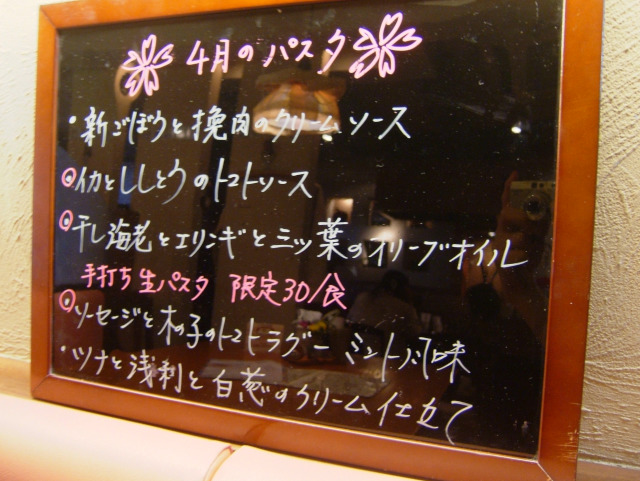 4月のパスタ
・新ごぼうと挽肉のクリームソース
◎イカとししとうのトマトソース
◎干し海老とエリンギと三ッ葉のオリーブオイル
手打ち生パスタ 限定30食
◎ソーセージと木の子のトマトラグー ミント風味
・ツナと浅利と白葱のクリーム仕立て